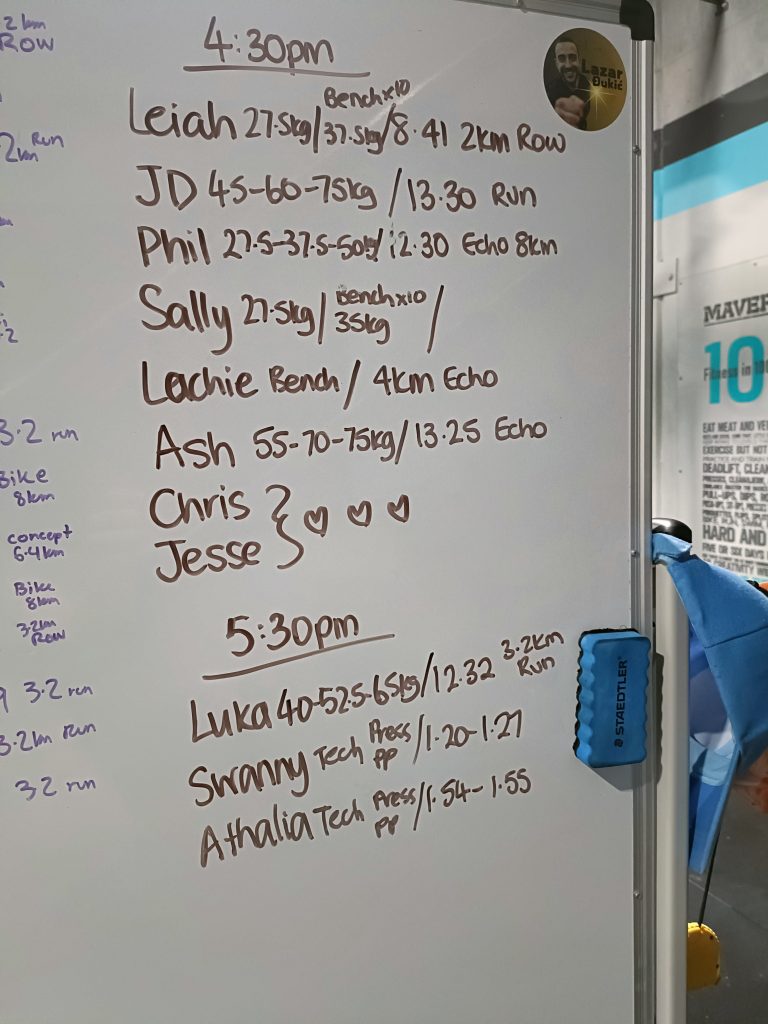 2km
ROW
2km Run
3.2 run
Bike
8km
concept
6.4km
Bike
8km
3.2km
Row
3.2 run
3.2km Run
3.2 run
4:30pm
Leiah 27.5kg/ Bench x10 37.5kg/8.41 2km Row
JD 45-60-75kg /13.30 Run
Phil 27.5-37.5-50kg/12.30 Echo 8km
Sally 27.5kg/ Bench x10 35kg /
Lachie Bench / 4km Echo
Ash 55-70-75kg/13.25 Echo
Chris } ♡ ♡ ♡
Jesse
5:30pm
Luka 40-52.5-65kg/12.32 3.2km Run
Swanny Tech Press PP /1.20-1.27
Athalia Tech Press PP /1.54-1.55
Lazar
Đukić
STAEDTLER
MAVER
10
Fitness in 100
EAT MEAT AND VE
EXERCISE BUT NOT
DEADLIFT, CLEAN
HARD AND
FIVE OR SIX DAYS